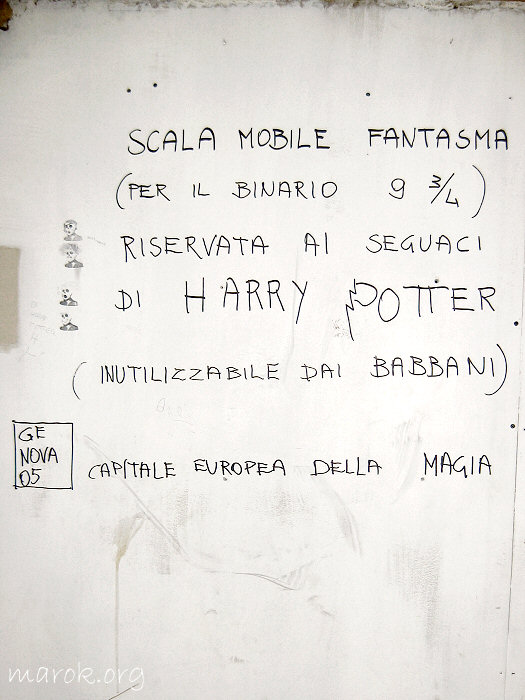 SCALA MOBILE FANTASMA
(PER IL BINARIO 9 3/4)
RISERVATA AI SEGUACI
DI HARRY POTTER
(INUTILIZZABILE DAI BABBANI)
GE
NOVA
05
CAPITALE EUROPEA DELLA MAGIA
marok.org